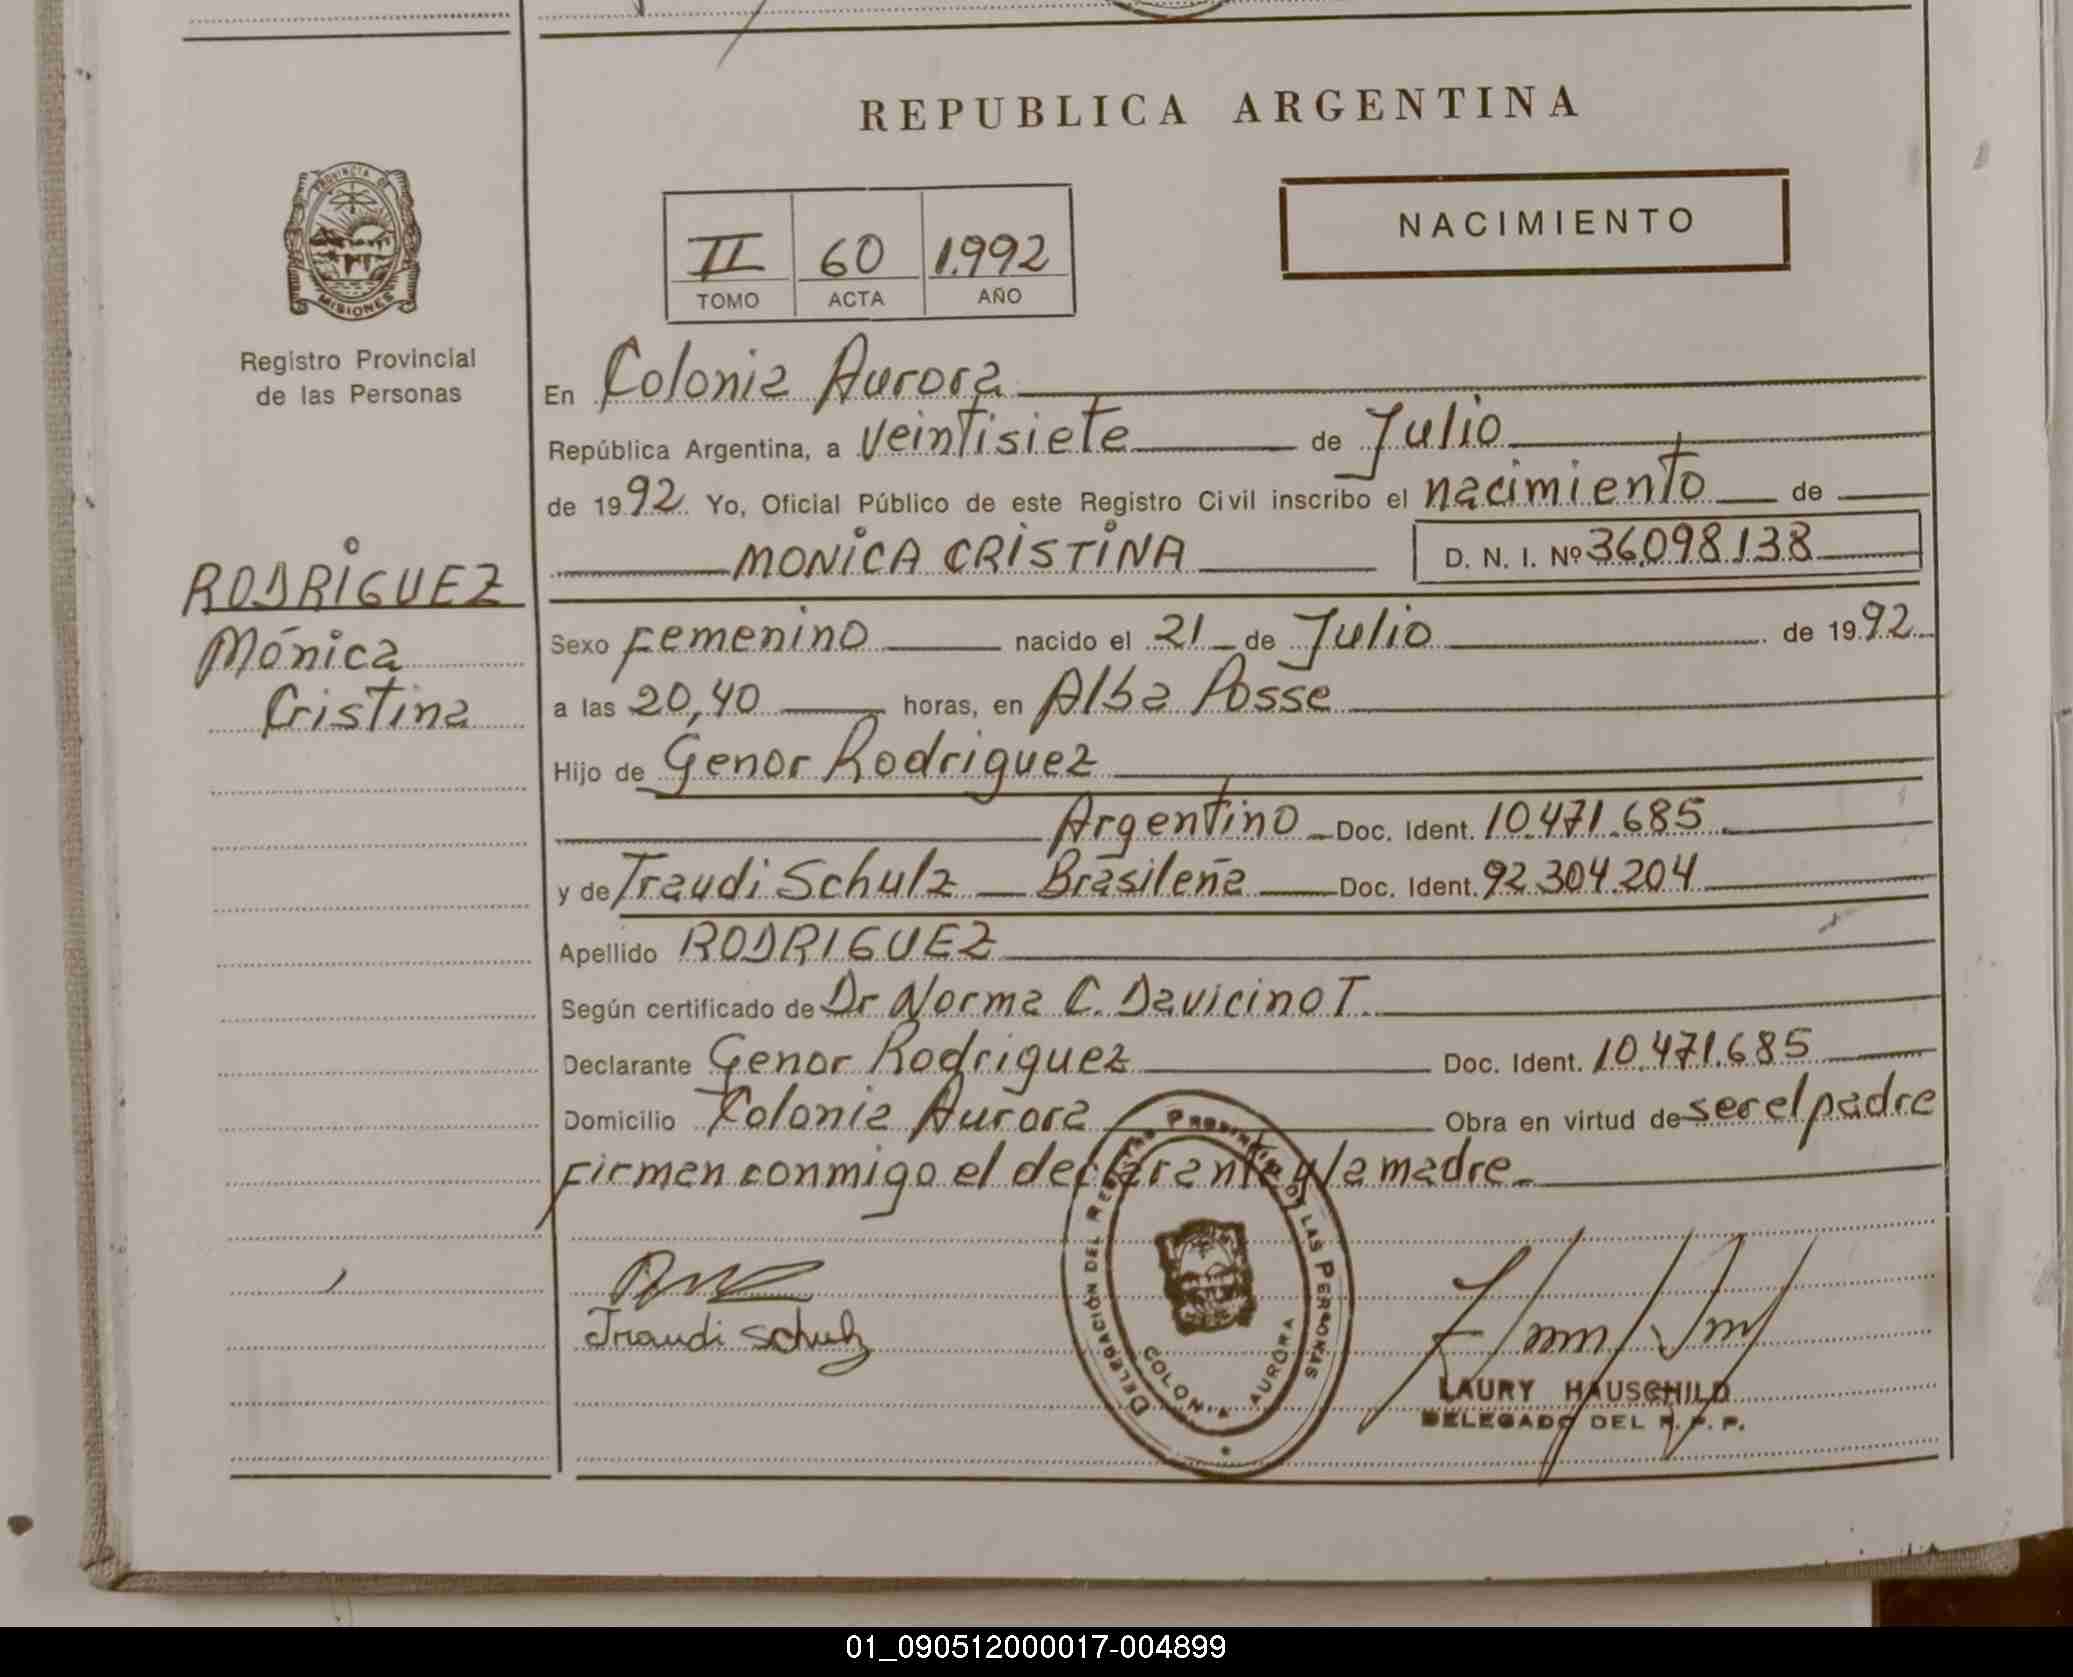 REPUBLICA ARGENTINA
PROVINCIA DE
MISIONES
Registro Provincial
de las Personas
NACIMIENTO
II 60 1.992
TOMO ACTA AÑO
En Colonia Aurora
República Argentina, a veintisiete de Julio
de 1992 Yo, Oficial Público de este Registro Civil inscribo el nacimiento de
MONICA CRISTINA D. N. I. Nº 36.098.138
RODRIGUEZ
Mónica
Cristina
Sexo Femenino nacido el 21 de Julio de 1992
a las 20,40 horas, en Alba Posse
Hijo de Genor Rodriguez
Argentino Doc. Ident. 10.471.685
y de Traudi Schulz Brasileña Doc. Ident. 92.304.204
Apellido RODRIGUEZ
Según certificado de Dr Norma C. Davicino T.
Declarante Genor Rodriguez Doc. Ident. 10.471.685
Domicilio Colonia Aurora Obra en virtud de ser el padre
Firman conmigo el declarante y la madre
Traudi Schulz
DELEGACIÓN DEL REGISTRO PROVINCIAL DE LAS PERSONAS
COLONIA AURORA
LAURY HAUSCHILD
DELEGADO DEL R. P. P.
01_090512000017-004899